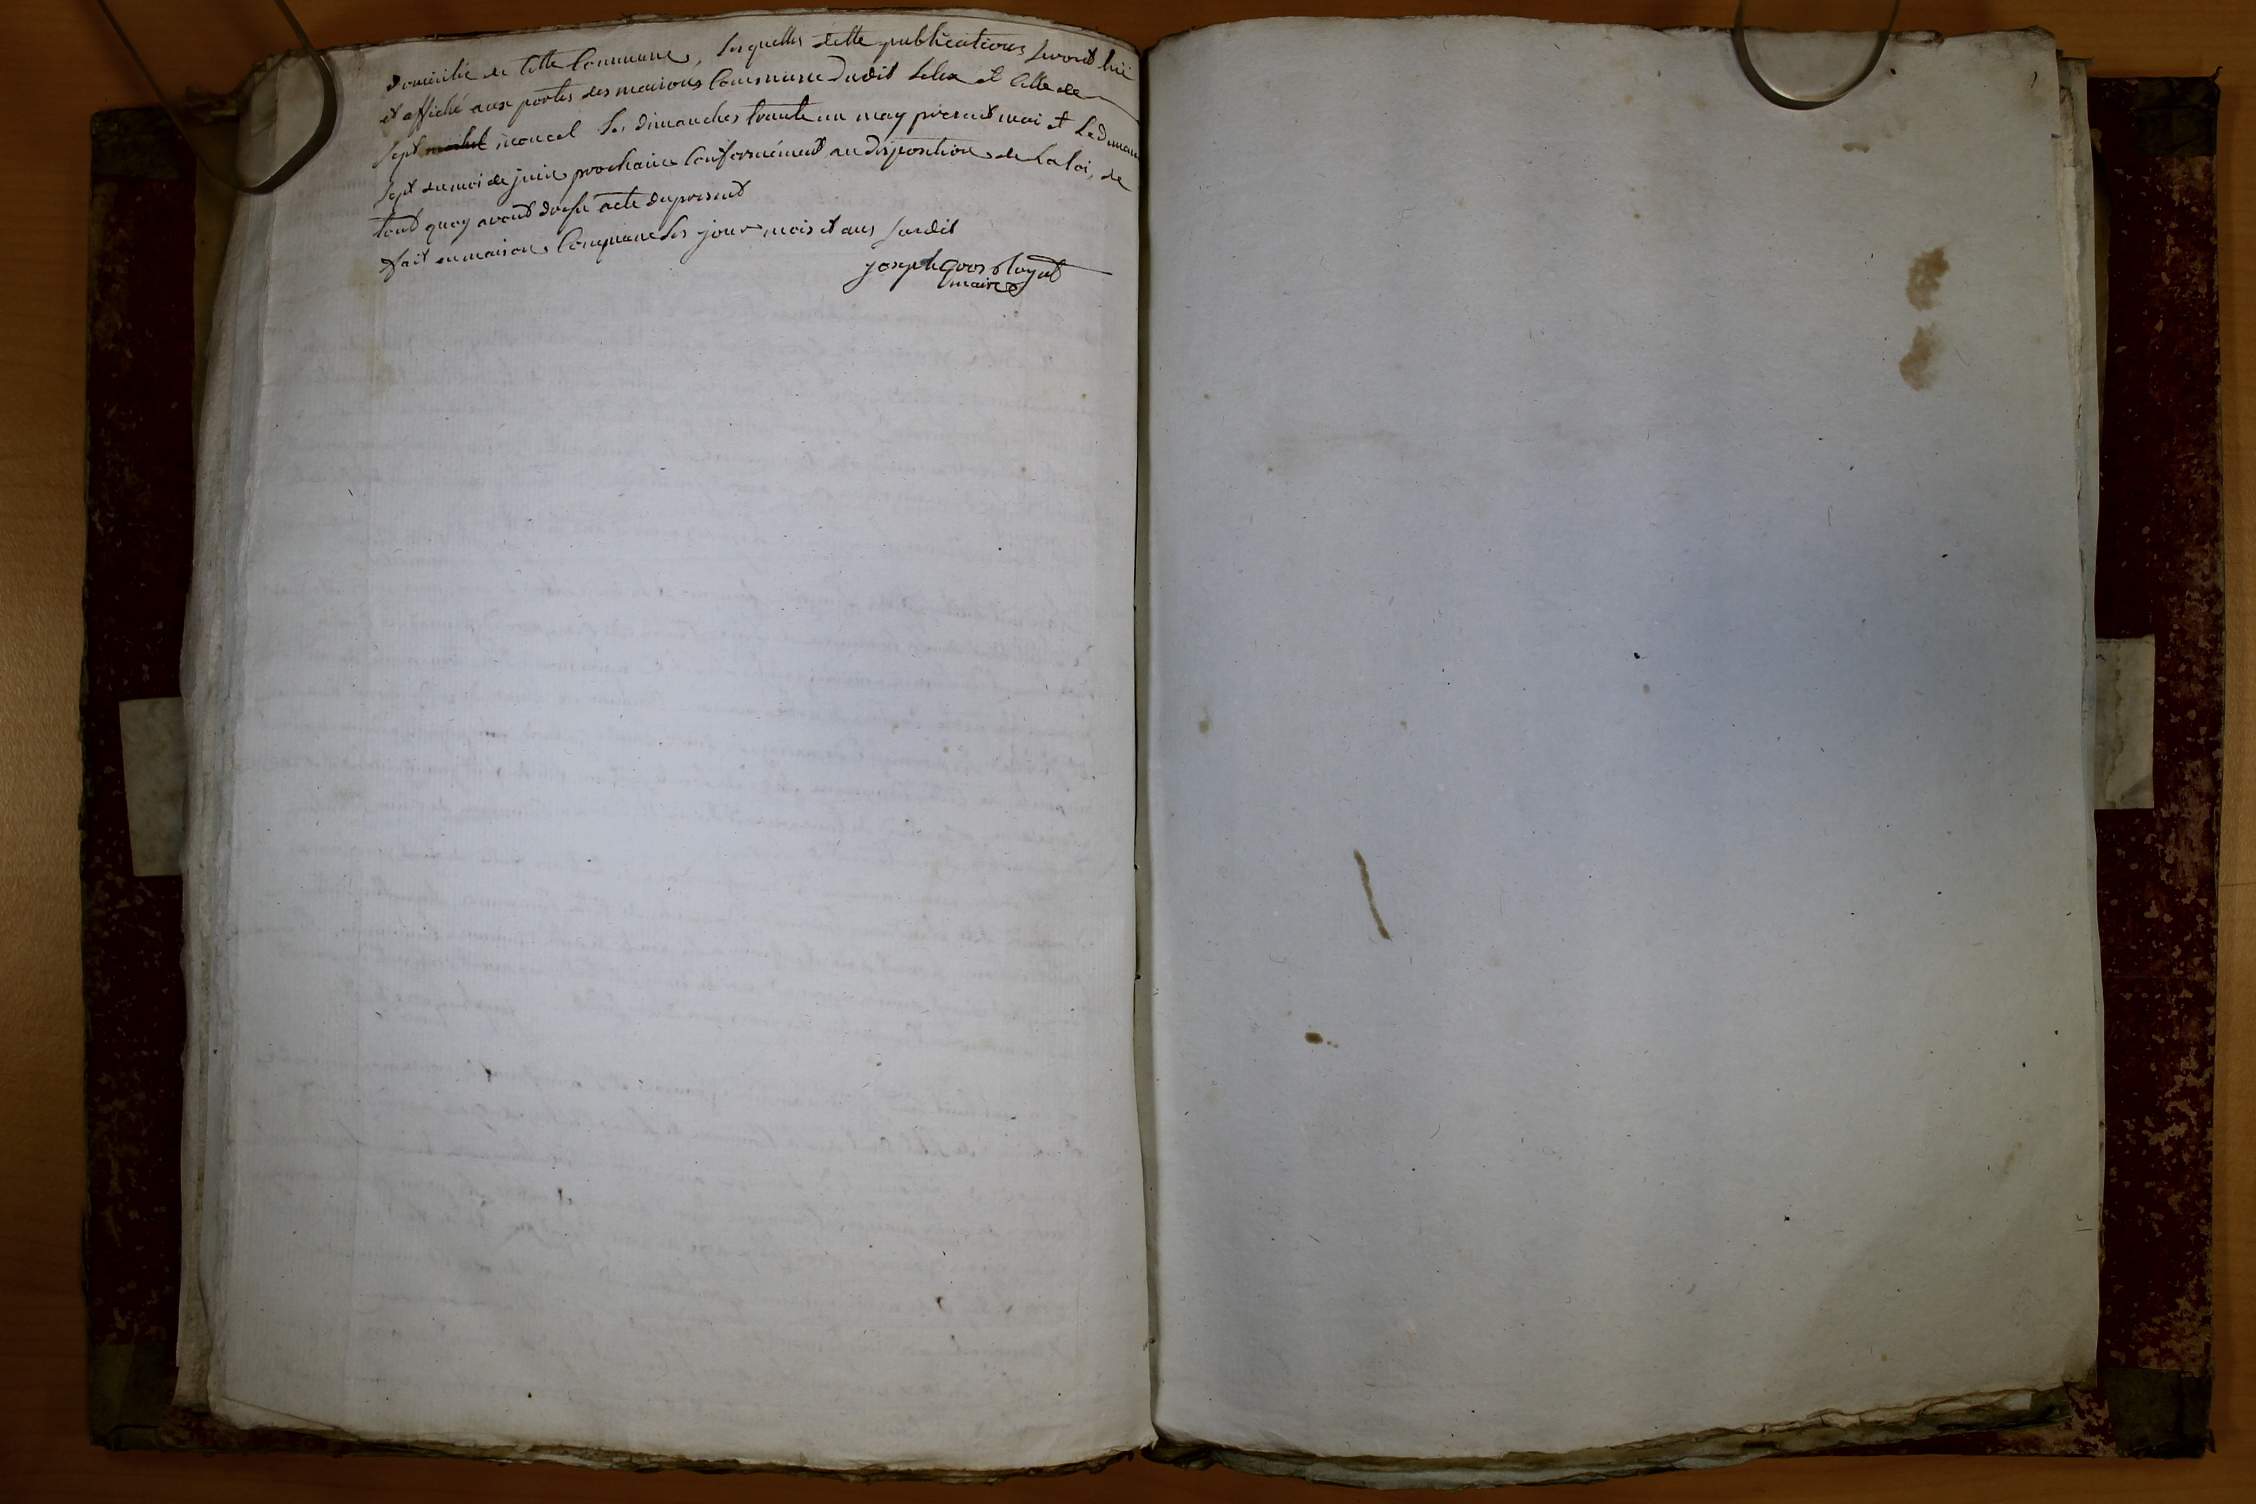 domicilié de Cette Commune, lesquelles dette publications seront lüe
et affiché aux portes des maisons Commune dudit et Celle de
sept moncel les dimanches trante un may présent moi et Le diman
sept du moi de juin prochain Conformément au disposition de La loi, de
tout quoy avons dressé acte du present
fait en maison Commune les jour mois et ans susdit
joseph gros
maire